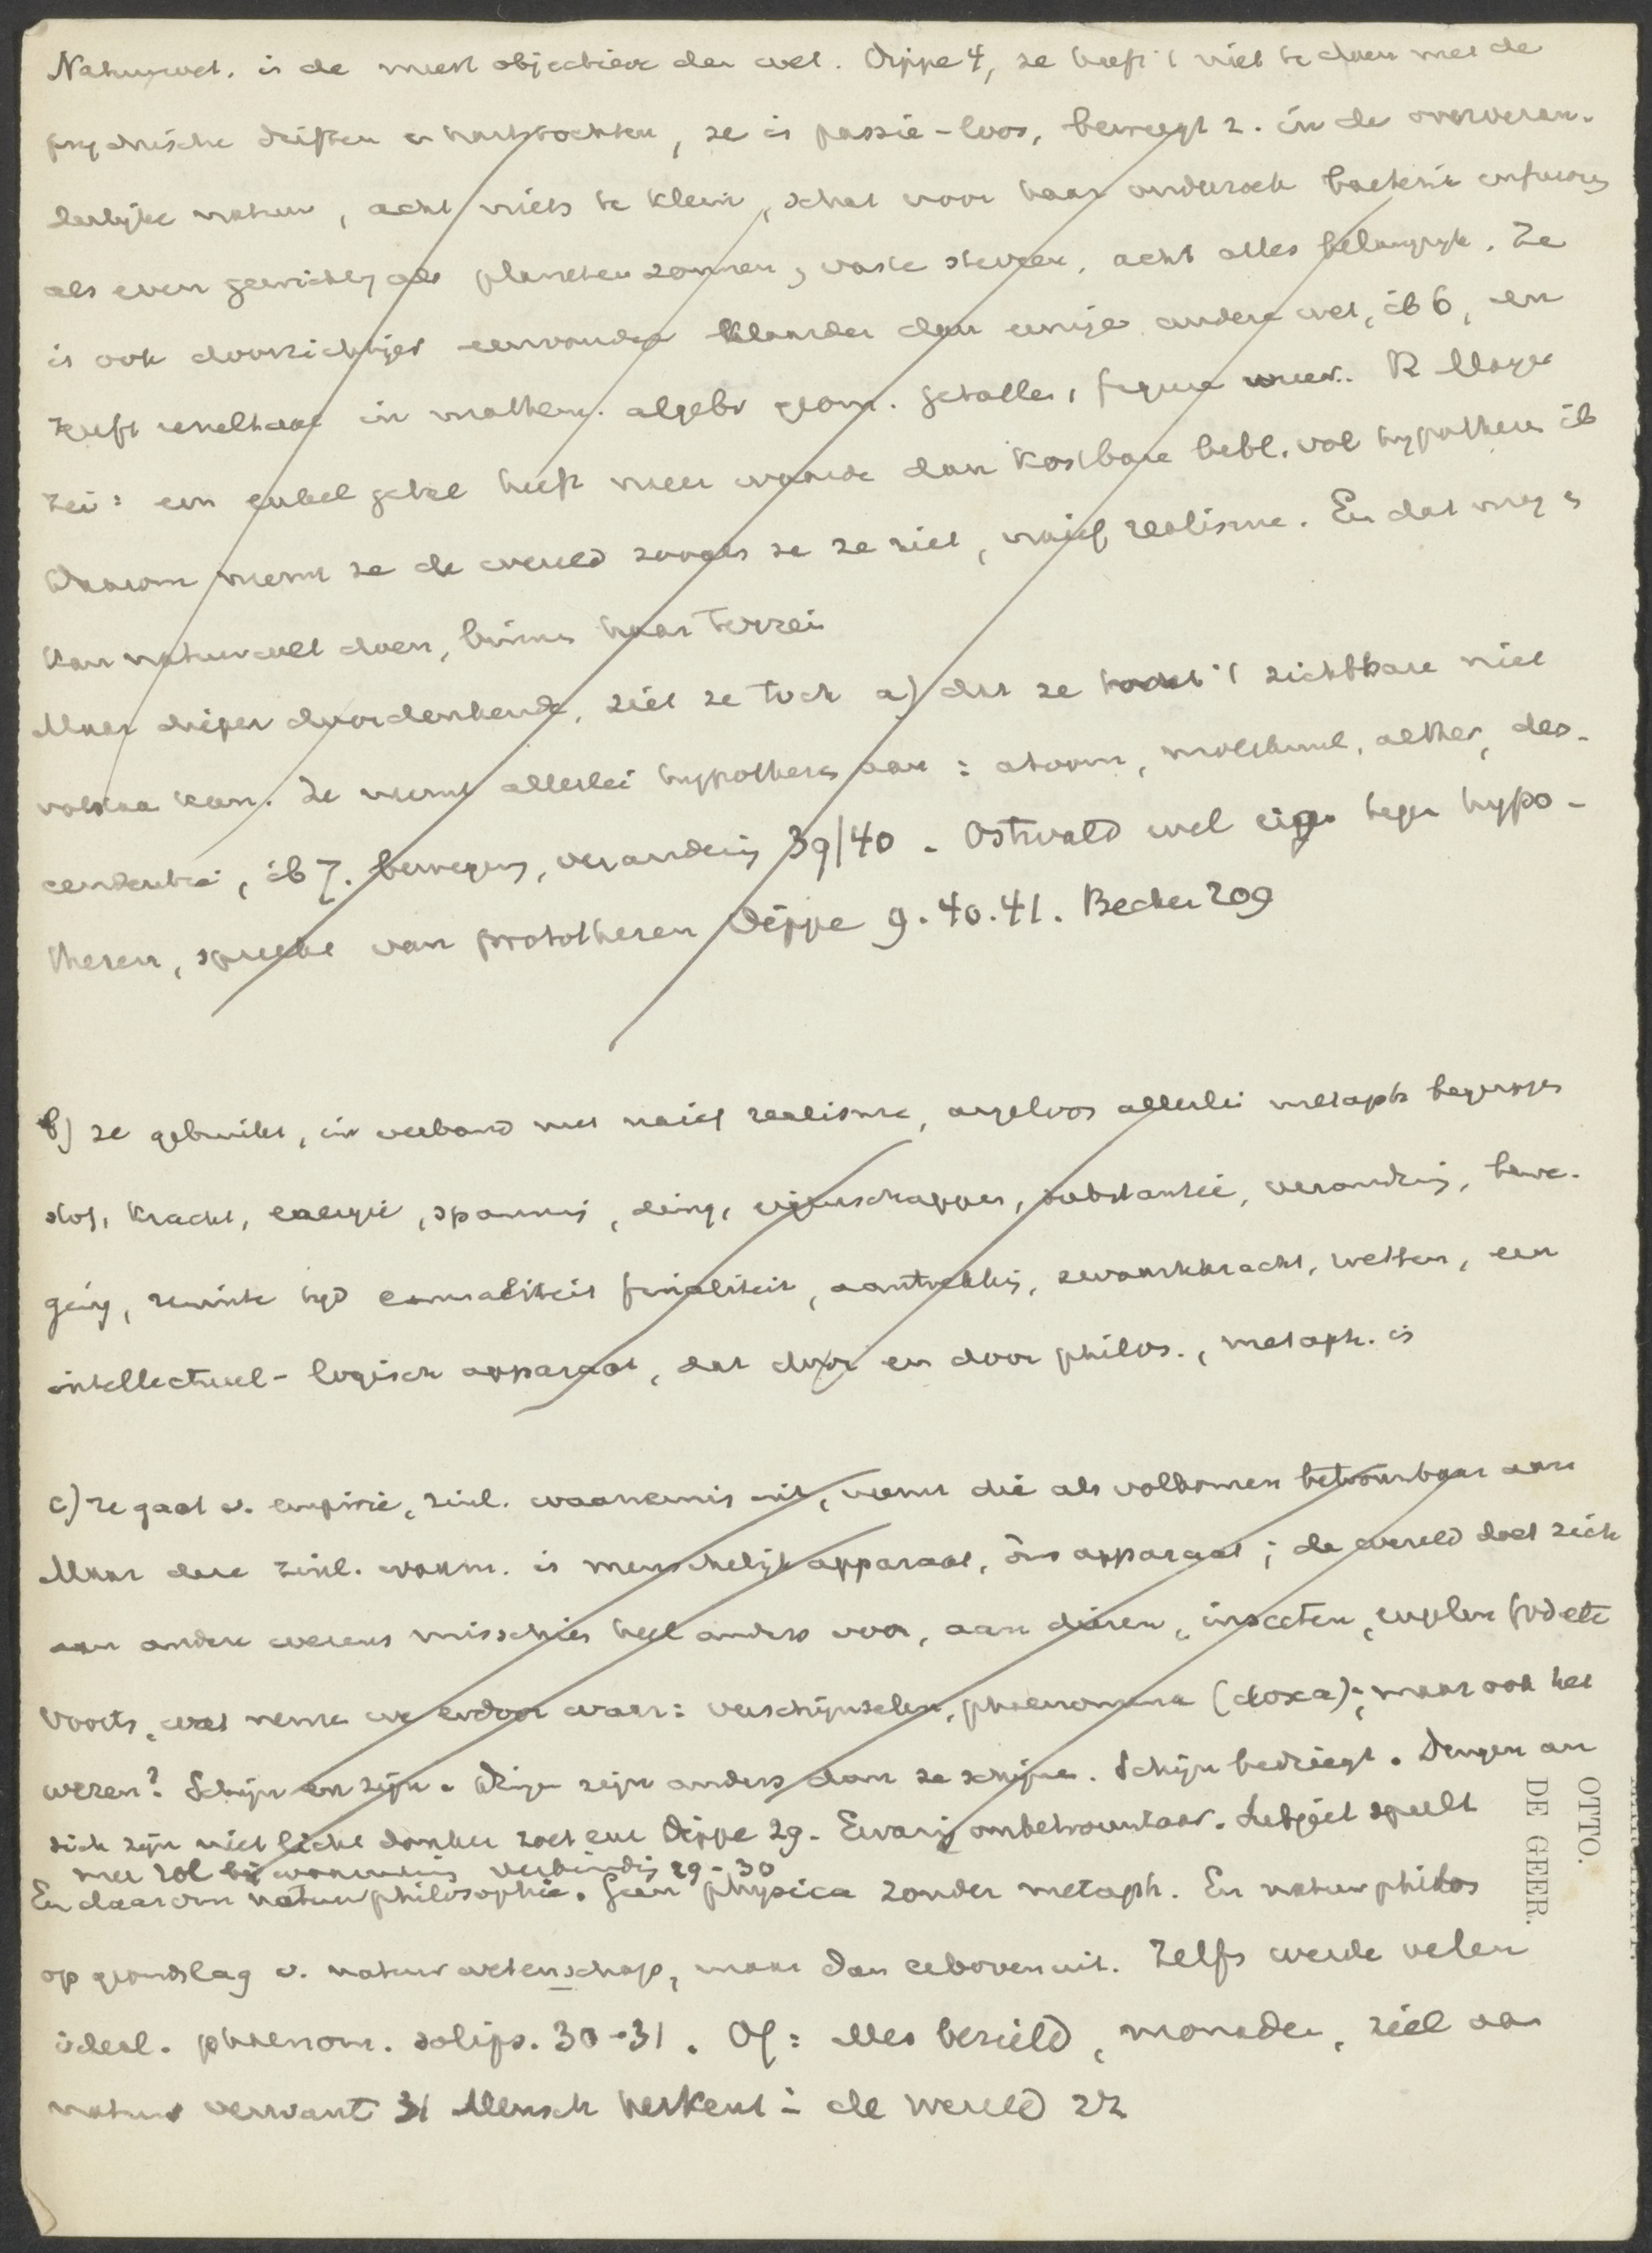 Natuurwet. is de meest objectieve der wet. Dippe 4, ze heeft 't niet te doen met de
psychische driften en hartstochten, ze is passie-loos, beweegt z. in de onveran-
derlijke natuur, acht niets te klein, schat voor haar onderzoek bacterie infusoria
als even gewichtig als planeten zonnen, vaste sterren, acht alles belangrijk. Ze
is ook doorzichtiger eenvoudig klaarder dan eenige andere wet, ib 6, en
heeft in mathem. algebr geom. getallen, figuren weer. R Mayer
zei: een enkel getal heeft meer waarde dan kostbare bibl. vol hypothesen ib
Daarom neemt ze de wereld zooals ze ze ziet, naief realisme. En dat mag en
kan natuurwet doen, binnen haar terrein
Maar dieper doordenkende, ziet ze toch a) dat ze 't zichtbare niet
volstaan kan. Ze neemt allerlei hypotheses aan: atoom, molekuul, aether, des-
cendentie, ib 7. beweging, verandering 39/40. Ostwald wel eigen tegen hypo-
thesen, spreekt van protothesen Dippe 9.40.41. Becher 209
b) ze gebruikt, in verband met naief realisme, argeloos allerlei metaph begrippen
stof, kracht, energie, spanning, ding, eigenschappen, substantie, verandering, bewe-
ging, ruimte tijd causaliteit finaliteit, aantrekking, zwaartekracht, wetten, een
intellectueel-logisch apparaat, dat door en door philos., metaph. is
c) ze gaat v. empirie, zinl. waarneming uit, neemt die als volkomen betrouwbaar aan
Maar deze zinl. waarn. is menschelijk apparaat, ons apparaat; de wereld doet zich
aan andere wezens misschien heel anders voor, aan dieren, insecten, engelen God etc
Voorts, wat nemen we erdoor waar: verschijnselen, phaenomena (doxa); maar ook het
wezen? Schijn en zijn. Dingen zijn anders dan ze schijnen. Schijn bedriegt. Dingen an
sich zijn niet licht donker zoet enz Dippe 29. Ervaring onbetrouwbaar. Subject speelt
mee rol bij waarneming verbinding 29-30
En daarom natuurphilosophie. Geen physica zonder metaph. En natuurphilos
op grondslag v. natuurwetenschap, maar dan erbovenuit. Zelfs werden velen
ideal. phaenom. solips. 30-31. Of: alles bezield, monaden, ziel aan
natuur verwant 31 Mensch herkent i de wereld 22
OTTO.
DE GEER.